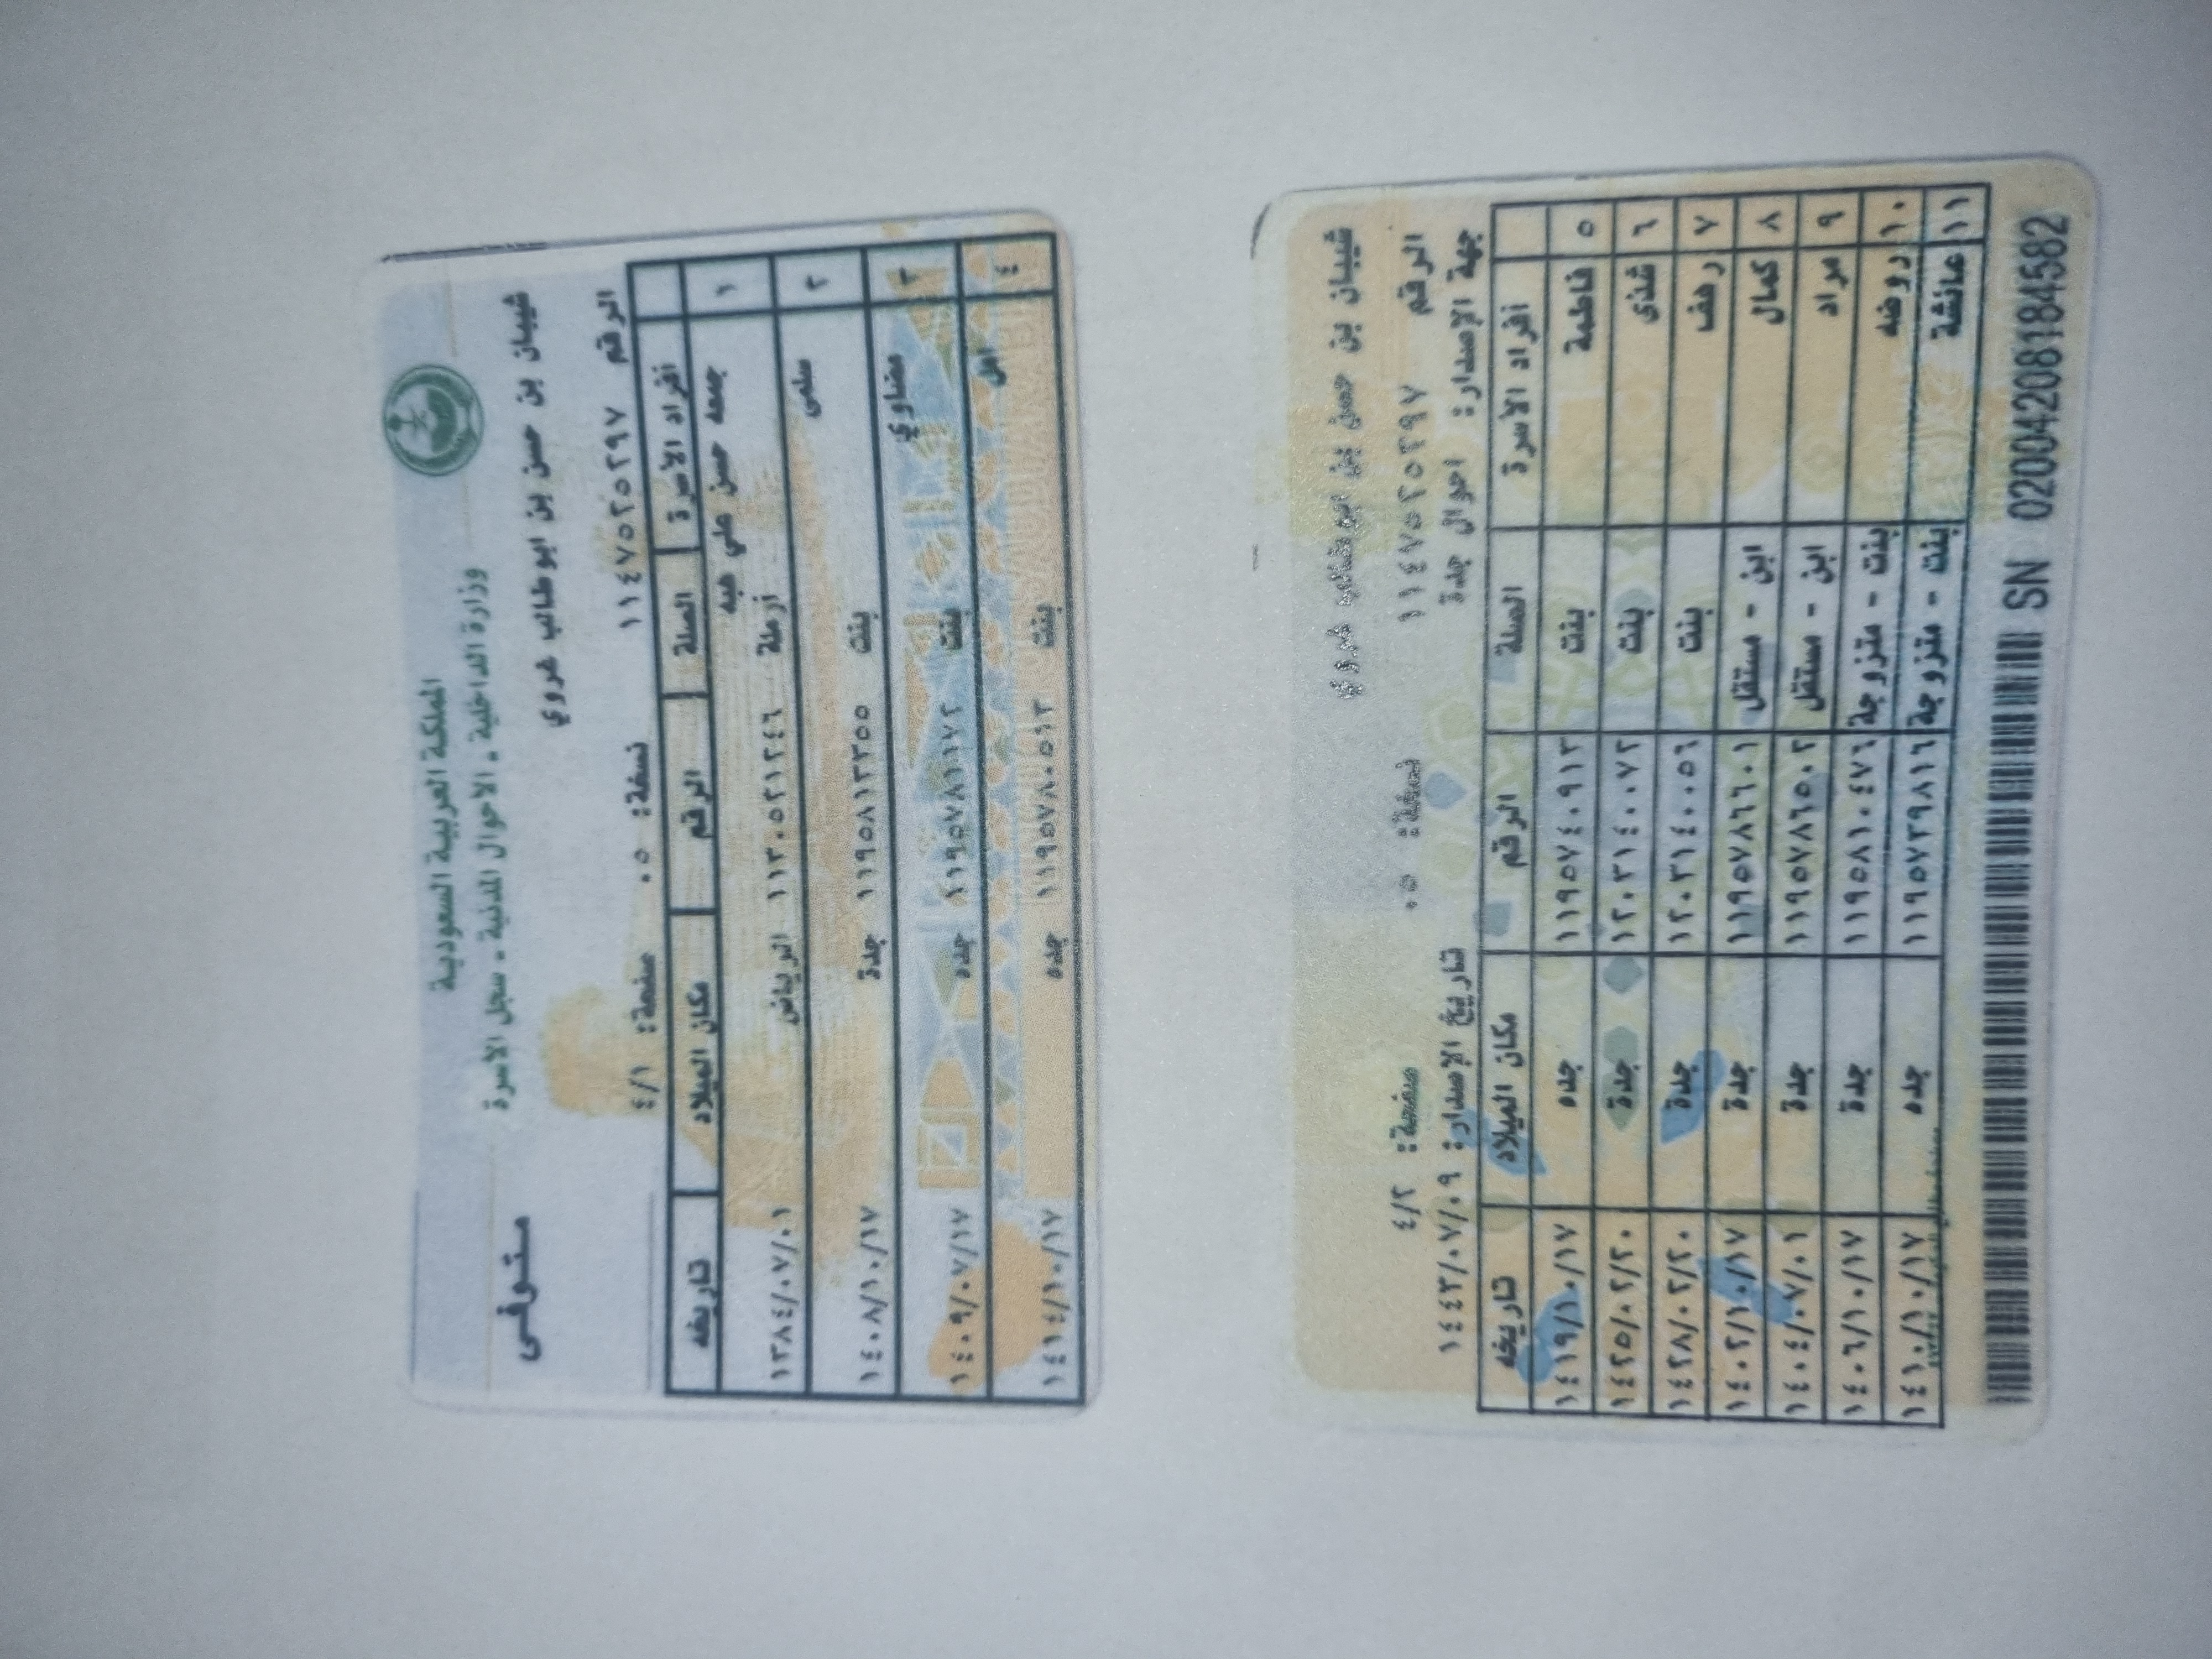 المملكة العربية السعودية
وزارة الداخلية - الأحوال المدنية - سجل الأسرة
متوفى
شيبان بن حسن بن ابوطالب هروي
الرقم ١١٤٧٥٢٥٢٩٧ نسخة: ٠٥ صفحة: ٤/١
أفراد الأسرة الصلة الرقم مكان الميلاد تاريخه
١ جمعه حسن علي هبه أرملة ١١٣٠٥٢١٢٤٦ الرياض ١٣٨٤/٠٧/٠١
٢ سلمى بنت ١١٩٥٨١٢٣٥٥ جدة ١٤٠٨/١٠/١٧
٣ مضاوي بنت ١١٩٥٧٨١١٧٢ جدة ١٤٠٩/٠٧/١٧
٤ امل بنت ١١٩٥٧٨٠٥٦٣ جده ١٤١٤/١٠/١٧
شيبان بن حسن بن ابوطالب هروي
الرقم ١١٤٧٥٢٥٢٩٧ نسخة: ٠٥ صفحة: ٤/٢
جهة الإصدار: احوال جدة تاريخ الإصدار: ١٤٤٣/٠٧/٠٩
أفراد الأسرة الصلة الرقم مكان الميلاد تاريخه
٥ فاطمة بنت ١١٩٥٧٤٠٩١٣ جده ١٤١٩/١٠/١٧
٦ شذى بنت ١٢٠٣١٤٠٠٧٢ جدة ١٤٢٥/٠٢/٢٠
٧ رهف بنت ١٢٠٣١٤٠٠٥٦ جدة ١٤٢٨/٠٢/٢٠
٨ كمال ابن - مستقل ١١٩٥٧٨٦٦٠١ جدة ١٤٠٢/١٠/١٧
٩ مراد ابن - مستقل ١١٩٥٧٨٦٥٠٢ جدة ١٤٠٤/٠٧/٠١
١٠ روضه بنت - متزوجة ١١٩٥٨١٠٤٧٦ جدة ١٤٠٦/١٠/١٧
١١ عائشة بنت - متزوجة ١١٩٥٧٣٩٨١٦ جده ١٤١٠/١٠/١٧
SN 02004208184582